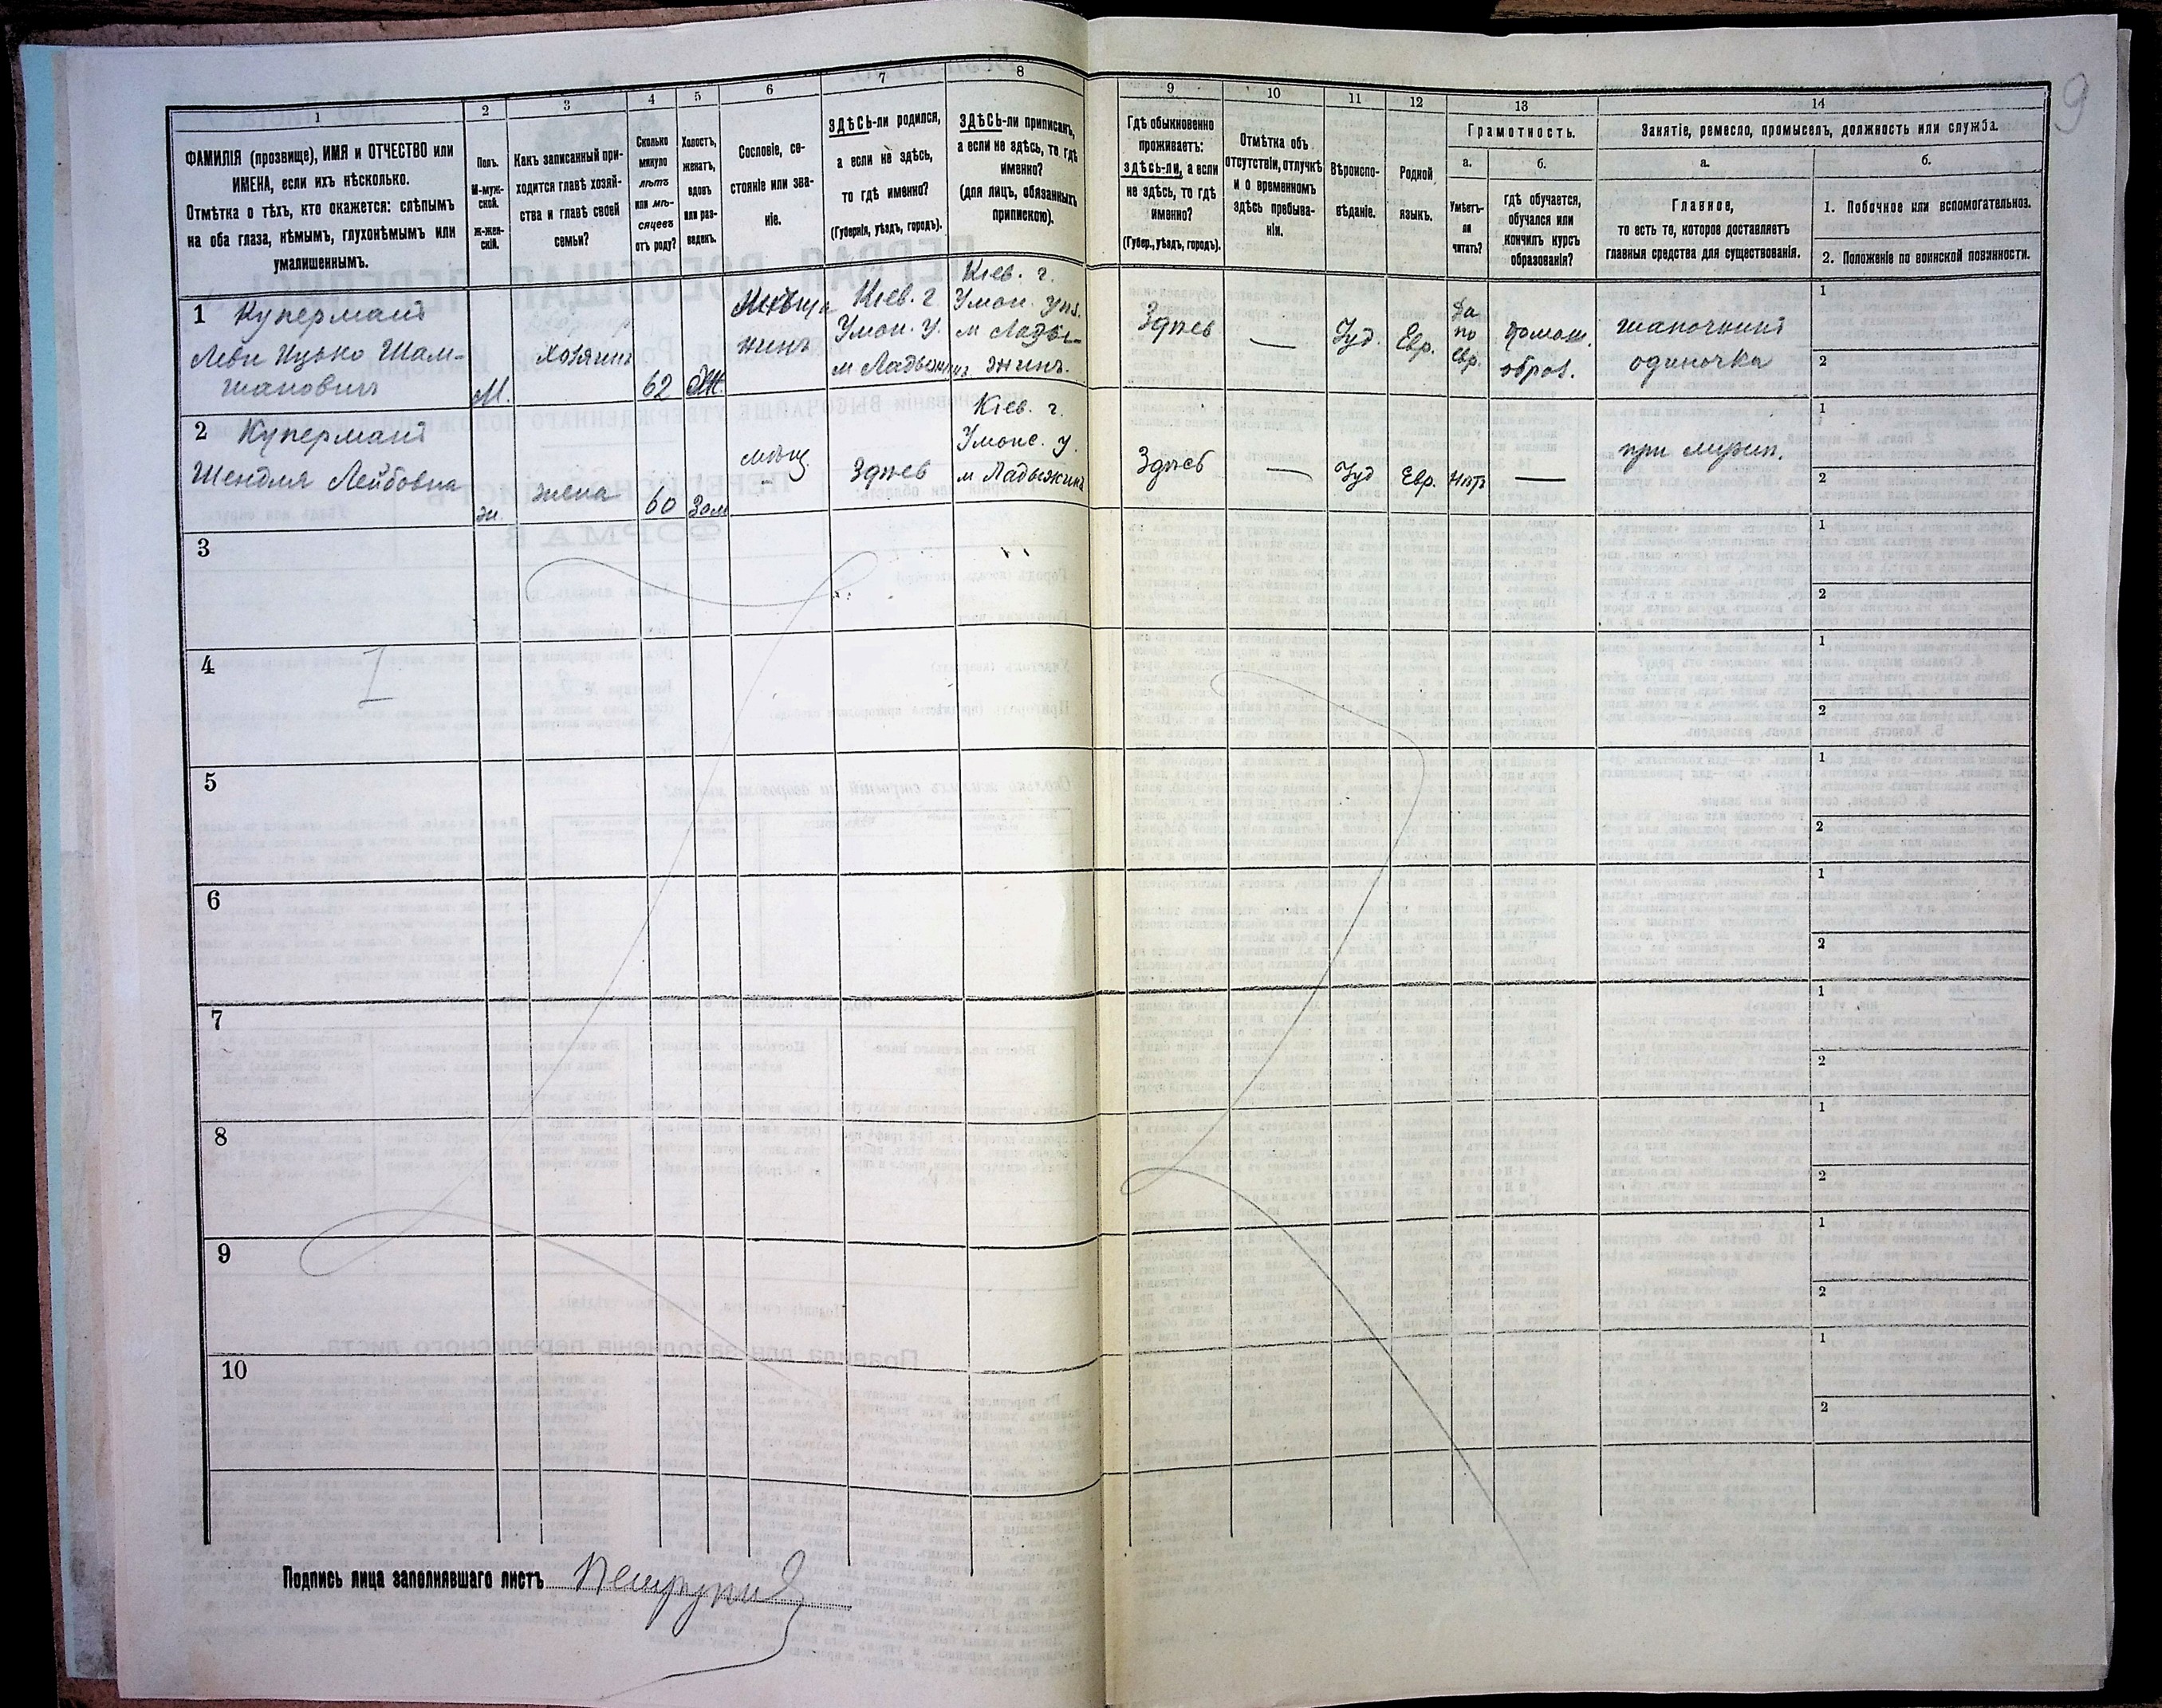 1
ФАМИЛІЯ (прозвище), ИМЯ и ОТЧЕСТВО или
ИМЕНА, если ихъ нѣсколько.
Отмѣтка о тѣхъ, кто окажется: слѣпымъ
на оба глаза, нѣмымъ, глухонѣмымъ или
умалишеннымъ.
2
Полъ.
М-муж-
ской.
ж-жен-
скій.
3
Какъ записанный при-
ходится главѣ хозяй-
ства и главѣ своей
семьи?
4
Сколько
минуло
лѣтъ
или мѣ-
сяцевъ
отъ роду?
5
Холостъ,
женатъ,
вдовъ
или раз-
веденъ.
6
Сословіе, со-
стояніе или зва-
ніе.
7
ЗДѢСЬ-ли родился,
а если не здѣсь,
то гдѣ именно?
(Губернія, уѣздъ, городъ).
8
ЗДѢСЬ-ли приписанъ,
а если не здѣсь, то гдѣ
именно?
(для лицъ, обязанныхъ
припискою).
9
Гдѣ обыкновенно
проживаетъ:
здѣсь-ли, а если
не здѣсь, то гдѣ
именно?
(Губер., уѣздъ, городъ).
10
Отмѣтка объ
отсутствіи, отлучкѣ
и о временномъ
здѣсь пребыва-
ніи.
11
Вѣроиспо-
вѣданіе.
12
Родной
языкъ.
13
Грамотность.
а.
Умѣетъ-
ли
читать?
б.
гдѣ обучается,
обучался или
кончилъ курсъ
образованія?
14
Занятіе, ремесло, промыселъ, должность или служба.
а.
Главное,
то есть то, которое доставляетъ
главныя средства для существованія.
б.
1. Побочное или вспомогательное.
2. Положеніе по воинской повинности.
9
1 Куперманъ
Леви Ицько Шам-
шановичъ
М.
хозяинъ
62
Ж
Мѣща
нинъ
Кіев. г
Умон. у.
м Ладыжинъ
Кіев. г.
м Лады-
жинъ.
Здѣсь
—
Іуд.
Евр.
Да
по
евр.
домаш.
образ.
шапочникъ
одиночка
1
2
2 Куперманъ
Шендля Лейбовна
ж.
жена
60
Зам
мѣщ.
Здѣсь
Кіев. г.
Умонс. у.
м Ладыжинъ
Здѣсь
—
Іуд
Евр.
нѣтъ
—
при
1
2
3
1
2
4
1
2
5
1
2
6
1
2
7
1
2
8
1
2
9
1
2
10
1
2
Подпись лица заполнявшаго листъ